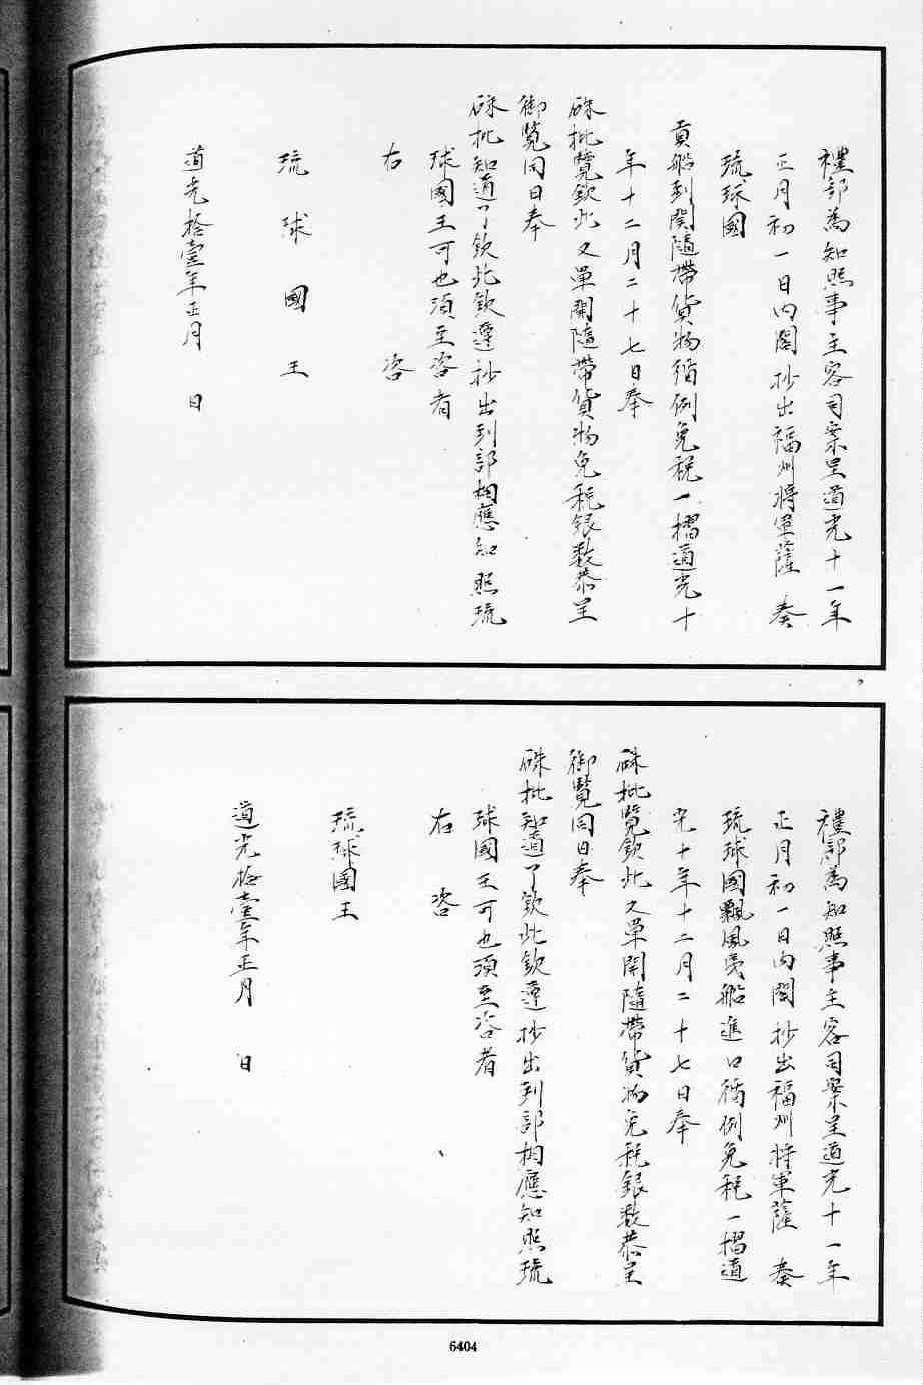 禮部為知照事主客司案呈道光十一年
正月初一日內閣抄出福州將軍薩　奏
琉球國
貢船到關隨帶貨物循例免稅一摺道光十
年十二月二十七日奉
硃批覽欽此又單開隨帶貨物免稅銀數恭呈
御覽同日奉
硃批知道了欽此欽遵抄出到部相應知照琉
球國王可也須至咨者
右　咨
琉球國王
道光拾壹年正月　日
禮部為知照事主客司案呈道光十一年
正月初一日內閣抄出福州將軍薩　奏
琉球國飄風難船進口循例免稅一摺道
光十年十二月二十七日奉
硃批覽欽此又單開隨帶貨物免稅銀數恭呈
御覽同日奉
硃批知道了欽此欽遵抄出到部相應知照琉
球國王可也須至咨者
右　咨
琉球國王
道光拾壹年正月　日
6404